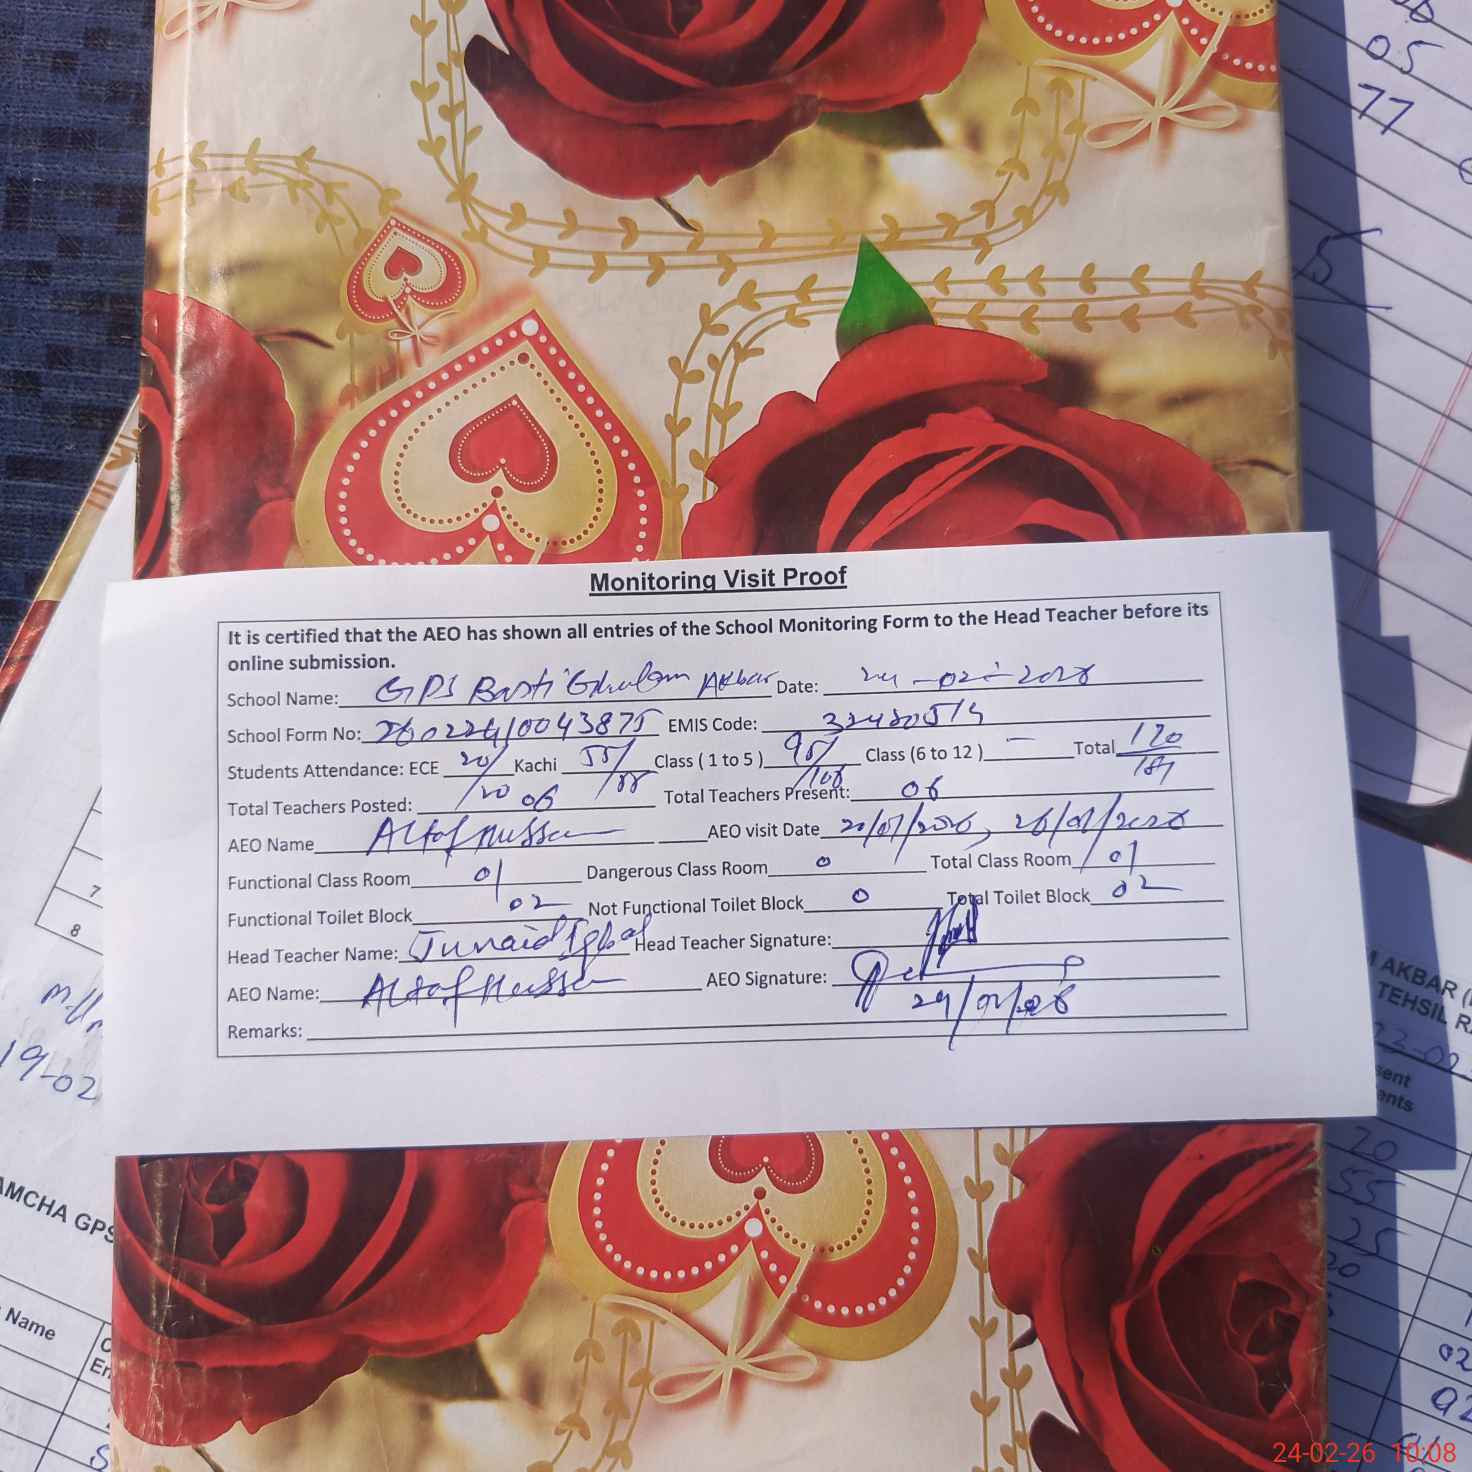 05
77
5
Monitoring Visit Proof
It is certified that the AEO has shown all entries of the School Monitoring Form to the Head Teacher before its
online submission.
School Name: GPS Basti Ghulam Akbar Date: 24-02-2026
School Form No: EMIS Code:
Students Attendance: ECE 20/20 Kachi 55/ Class ( 1 to 5 ) 95/106 Class (6 to 12 ) — Total 170/181
Total Teachers Posted: 06 Total Teachers Present: 06
AEO Name Altaf Hussain AEO visit Date
Functional Class Room 01 Dangerous Class Room 0 Total Class Room 01
Functional Toilet Block 02 Not Functional Toilet Block 0 Total Toilet Block 02
Head Teacher Name: Junaid Iqbal Head Teacher Signature:
AEO Name: Altaf Hussain AEO Signature:
Remarks:
7
8
19-02
AMCHA GPS
Name
AKBAR
TEHSIL
20
55
25
20
02
24-02-26 10:08